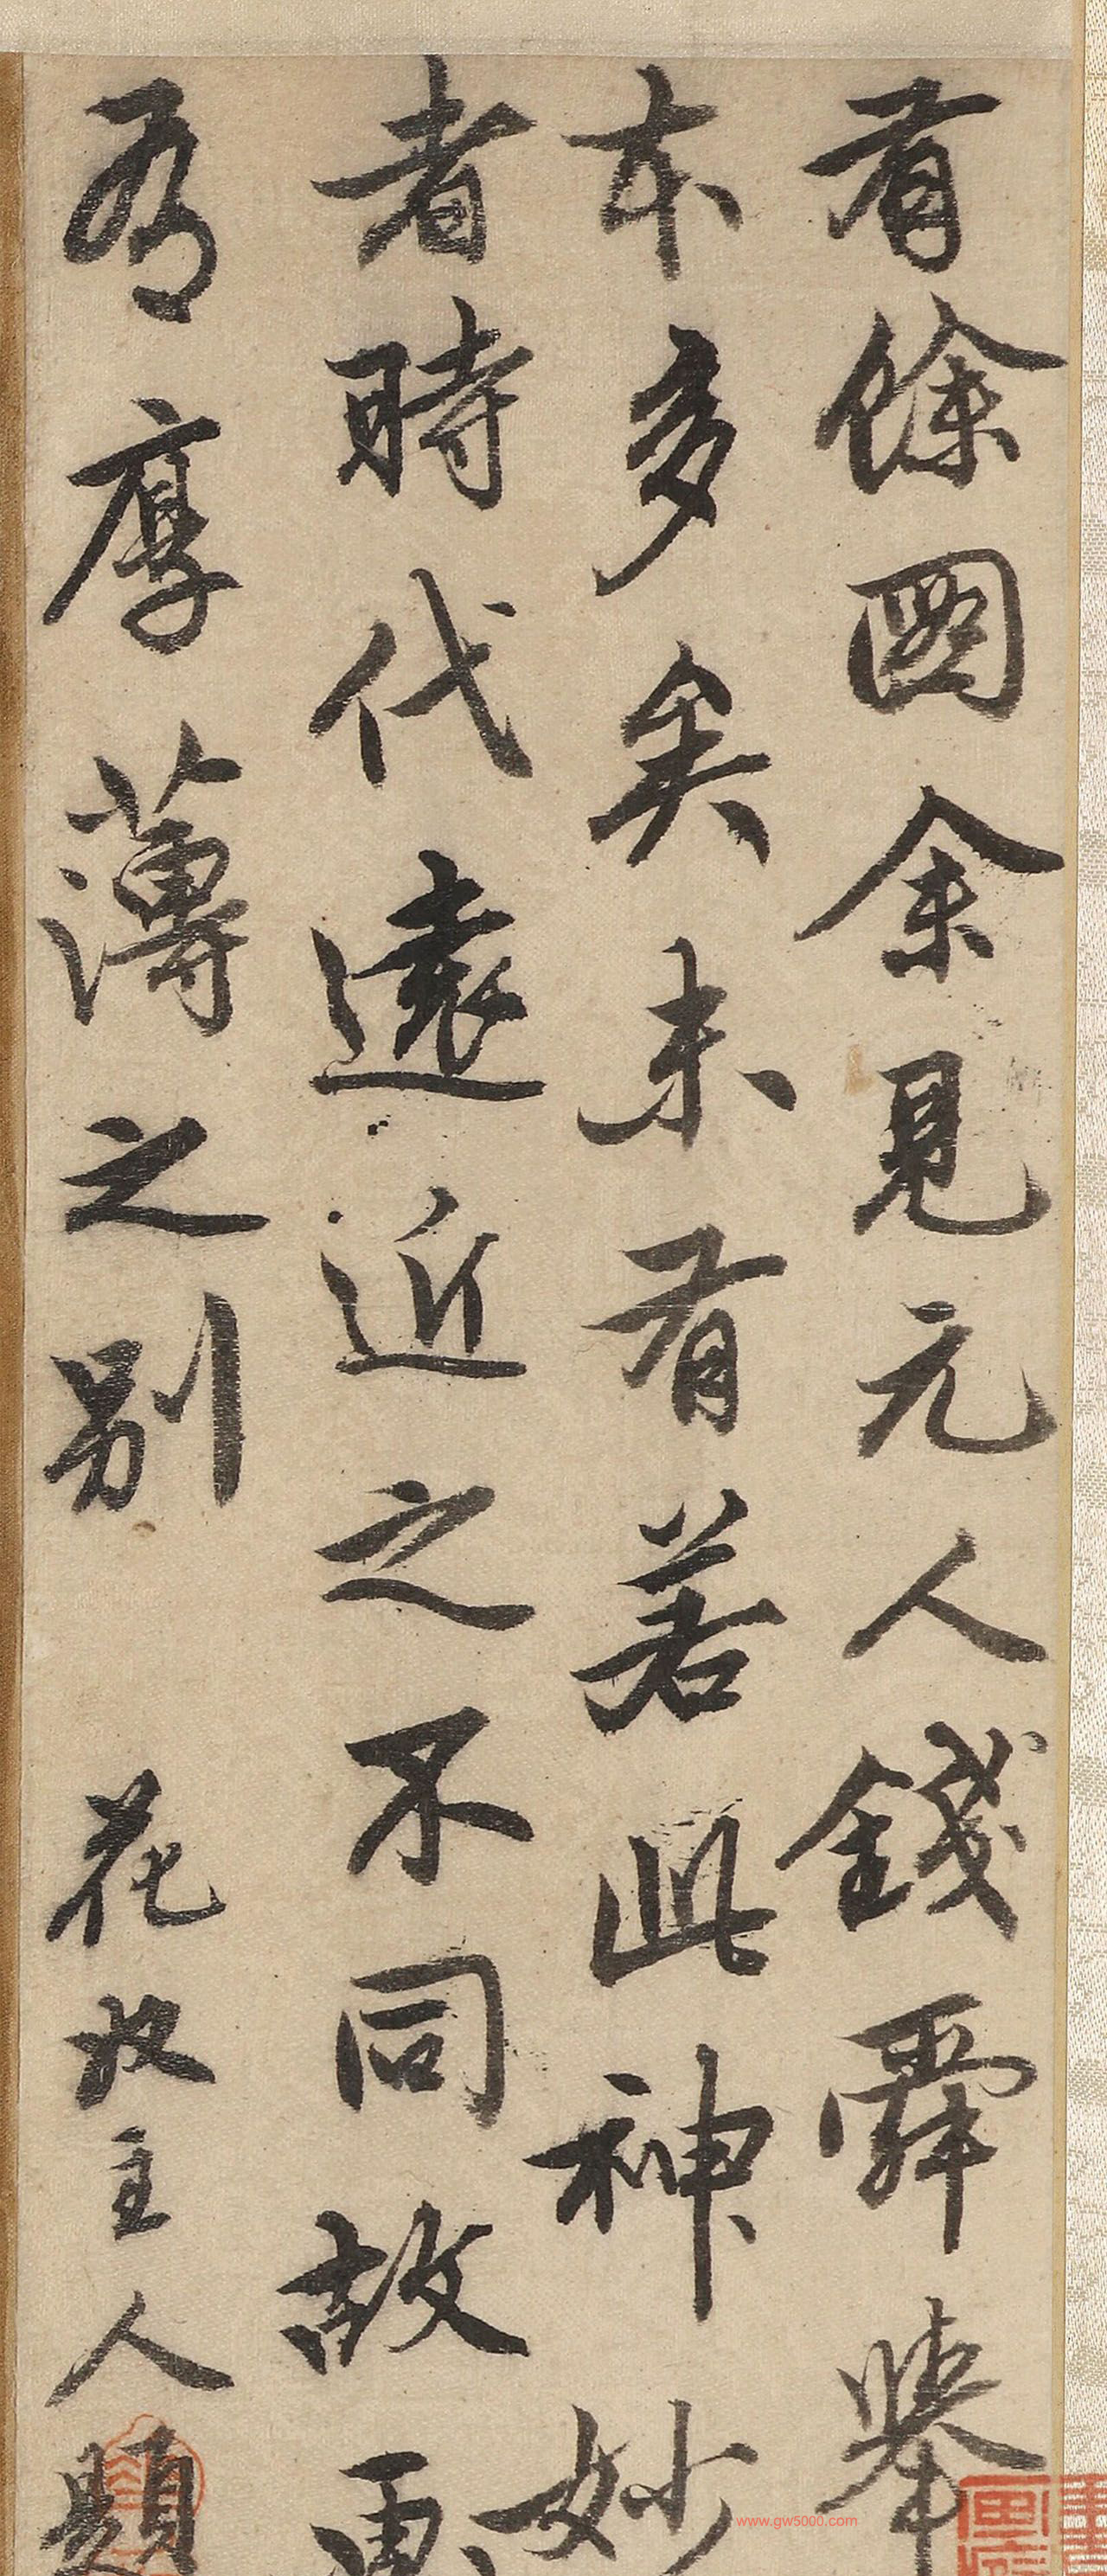 有餘圖余見元人錢舜舉
本多矣未有若此神妙
者時代遠近之不同故
有厚薄之别 花奴主人題
www.gw5000.com